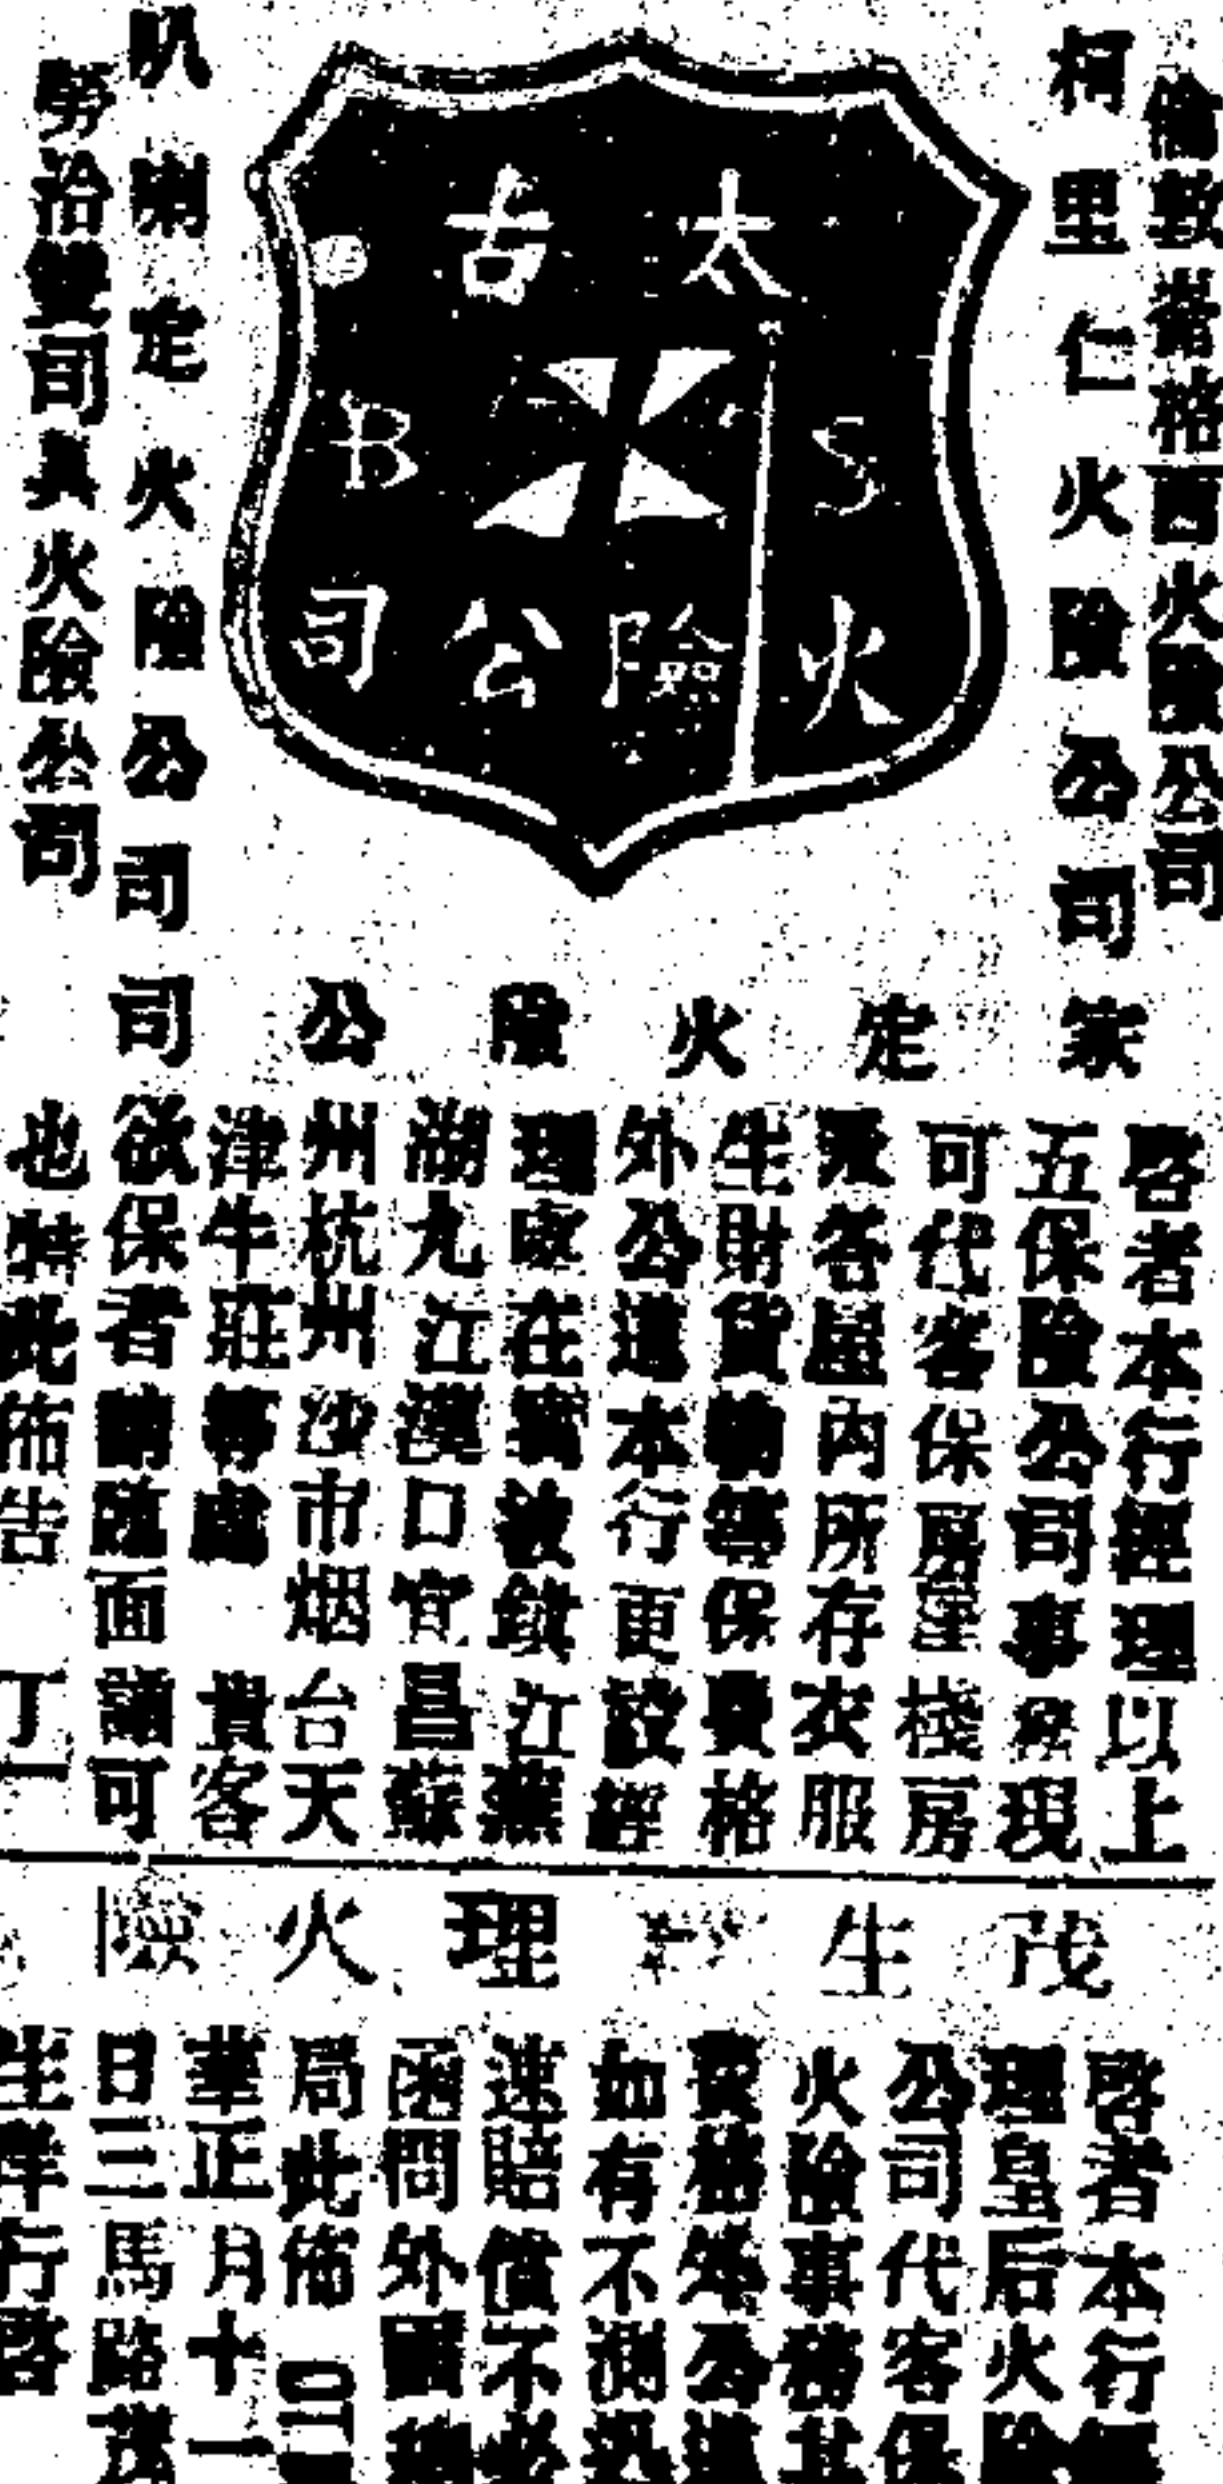 倫敦
格西火險公司
柯里仁火險公司
太古
S B
火險公司
叭喇定火險公司
勞治
司真火險公司
家定火險公司
啓者本行經理以上
五保險公司事務現
可代客保房屋棧房
各屋內所存衣服
生財貨物等保費格
外公道本行更設經
理處在寗波鎮江蕪
湖九江漢口宜昌蘇
州杭州沙市烟台天
津牛莊等處 貴客
欲保者請臨面議可
也特此佈告 丁一
茂生
理火險
啓者本行經
理皇后火險
公司代客保
火險事務其
費格外公道
如有不測
速賠償不
函問外國
局此佈
華正月十一
日三馬路茂
生洋行啓